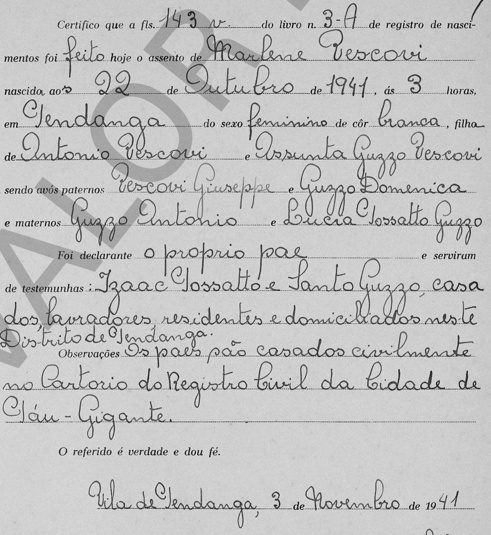 Certifico que a fls. 143 v. do livro n. 3-A de registro de nasci-
mentos foi feito hoje o assento de Marlene Vescovi
nascida, aos 22 de Outubro de 1941, ás 3 horas,
em Pendanga do sexo feminino de côr branca, filha
de Antonio Vescovi e Assunta Guzzo Vescovi
sendo avós paternos Vescovi Giuseppe e Guzzo Domenica
e maternos Guzzo Antonio e Lucia Tossatto Guzzo
Foi declarante o proprio pae e serviram
de testemunhas: Izaac Tossatto e Santo Guzzo, casa
dos, lavradores, residentes e domiciliados neste
Distrito de Pendanga.
Observações Os paes são casados civilmente
no Cartorio do Registro Civil da Cidade de
Páu-Gigante.
O referido é verdade e dou fé.
Vila de Pendanga, 3 de Novembro de 1941
VALOR